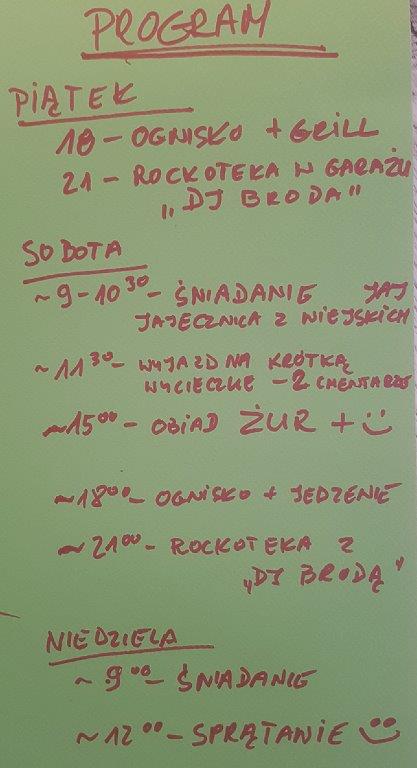 PROGRAM
PIĄTEK
18 - OGNISKO + GRILL
21 - ROCKOTEKA W GARAŻU
„DJ BRODA"
SOBOTA
~ 9 - 10 30 - ŚNIADANIE JAJ
JAJECZNICA Z WIEJSKICH
~ 11 30 - WYJAZD NA KRÓTKĄ
WYCIECZKE - 2 CMENTARZE
~ 15 00 - OBIAD ŻUR + :)
~ 18 00 - OGNISKO + JEDZENIE
~ 21 00 - ROCKOTEKA Z
„DJ BRODĄ"
NIEDZIELA
~ 9 00 - ŚNIADANIE
~ 12 00 - SPRĄTANIE :)